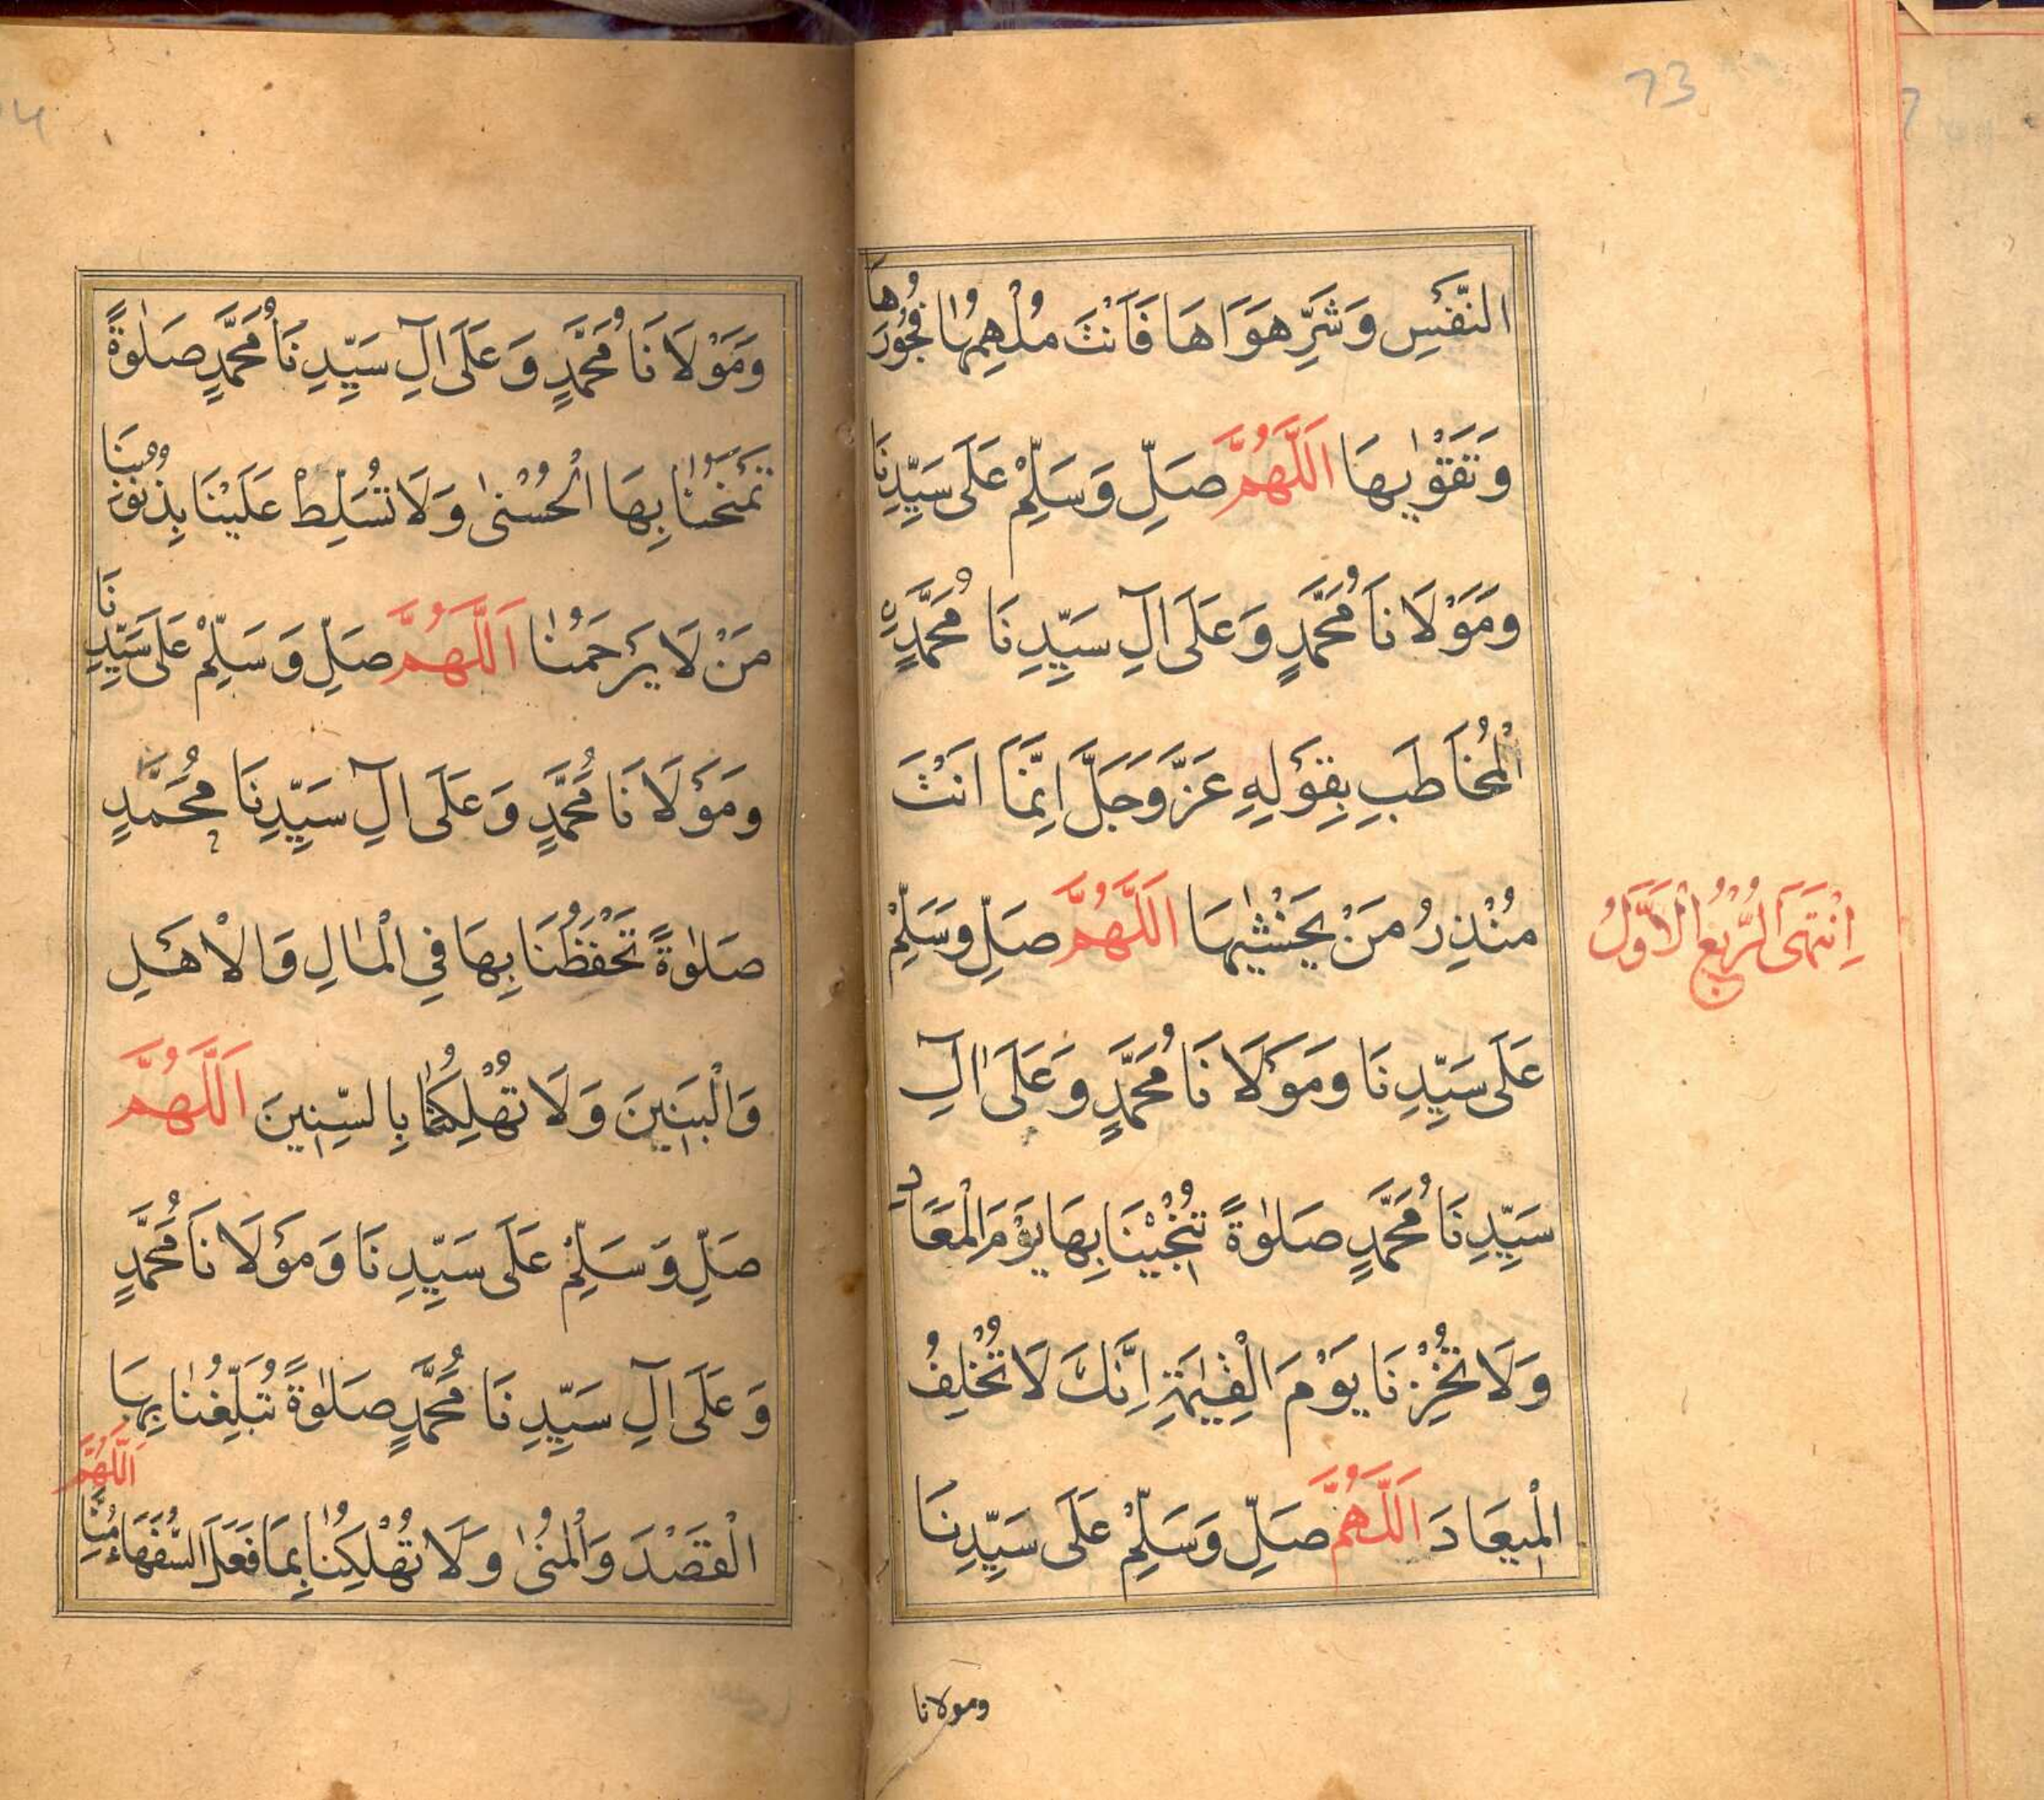 73
النَّفْسِ وَشَرِّ هَوَاهَا فَاَنْتَ مُلْهِمُهَا فُجُورَهَا
وَتَقْوٰيهَا اَللّٰهُمَّ صَلِّ وَسَلِّمْ عَلَى سَيِّدِنَا
وَمَوْلَانَا مُحَمَّدٍ وَعَلَى اٰلِ سَيِّدِنَا مُحَمَّدٍ
الْمُخَاطَبِ بِقَوْلِهِ عَزَّ وَجَلَّ اِنَّمَا اَنْتَ
مُنْذِرُ مَنْ يَخْشٰيهَا اَللّٰهُمَّ صَلِّ وَسَلِّمْ
عَلَى سَيِّدِنَا وَمَوْلَانَا مُحَمَّدٍ وَعَلَى اٰلِ
سَيِّدِنَا مُحَمَّدٍ صَلٰوةً تُنْجِينَا بِهَا يَوْمَ الْمَعَادِ
وَلَا تُخْزِنَا يَوْمَ الْقِيٰمَةِ اِنَّكَ لَا تُخْلِفُ
الْمِيعَادَ اَللّٰهُمَّ صَلِّ وَسَلِّمْ عَلَى سَيِّدِنَا
ومولانا
اِنْتَهَى الرُّبُعُ الْاَوَّلُ
وَمَوْلَانَا مُحَمَّدٍ وَعَلَى اٰلِ سَيِّدِنَا مُحَمَّدٍ صَلٰوةً
تَمْنَحُنَا بِهَا الْحُسْنٰى وَلَا تُسَلِّطْ عَلَيْنَا بِذُنُوبِنَا
مَنْ لَا يَرْحَمُنَا اَللّٰهُمَّ صَلِّ وَسَلِّمْ عَلَى سَيِّدِنَا
وَمَوْلَانَا مُحَمَّدٍ وَعَلَى اٰلِ سَيِّدِنَا مُحَمَّدٍ
صَلٰوةً تَحْفَظُنَا بِهَا فِي الْمَالِ وَالْاَهْلِ
وَالْبَنِينَ وَلَا تُهْلِكُنَا بِالسِّنِينَ اَللّٰهُمَّ
صَلِّ وَسَلِّمْ عَلَى سَيِّدِنَا وَمَوْلَانَا مُحَمَّدٍ
وَعَلَى اٰلِ سَيِّدِنَا مُحَمَّدٍ صَلٰوةً تُبَلِّغُنَا بِهَا
الْقَصْدَ وَالْمُنٰى وَلَا تُهْلِكْنَا بِمَا فَعَلَ السُّفَهَاءُ مِنَّا اَللّٰهُمَّ